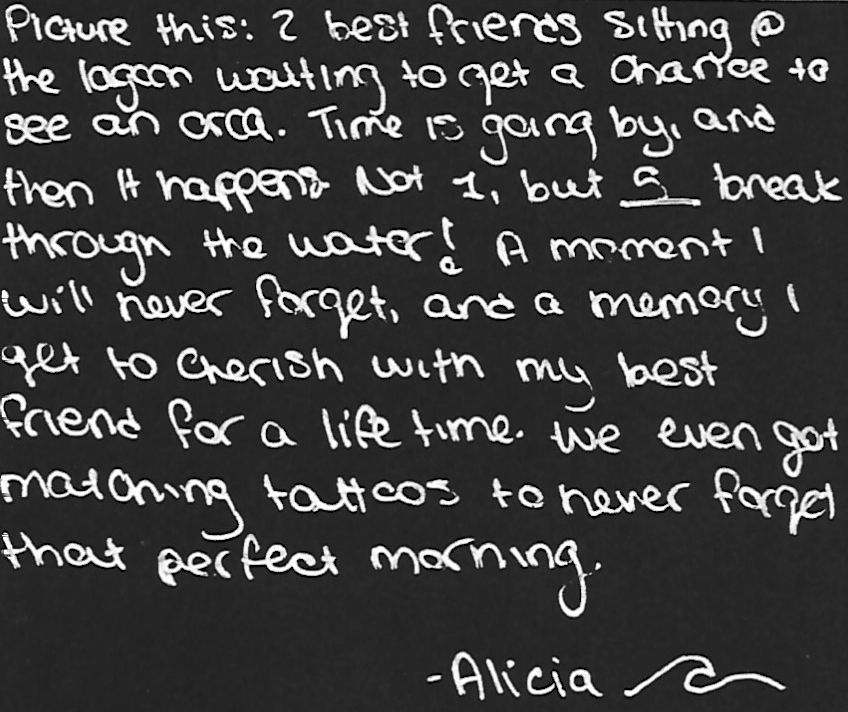 Picture this: 2 best friends sitting @
the lagoon waiting to get a chance to
see an orca. Time is going by, and
then it happens Not 1, but 5 break
through the water! A moment I
will never forget, and a memory I
get to cherish with my best
friend for a life time. We even got
matching tattoos to never forget
that perfect morning.
-Alicia